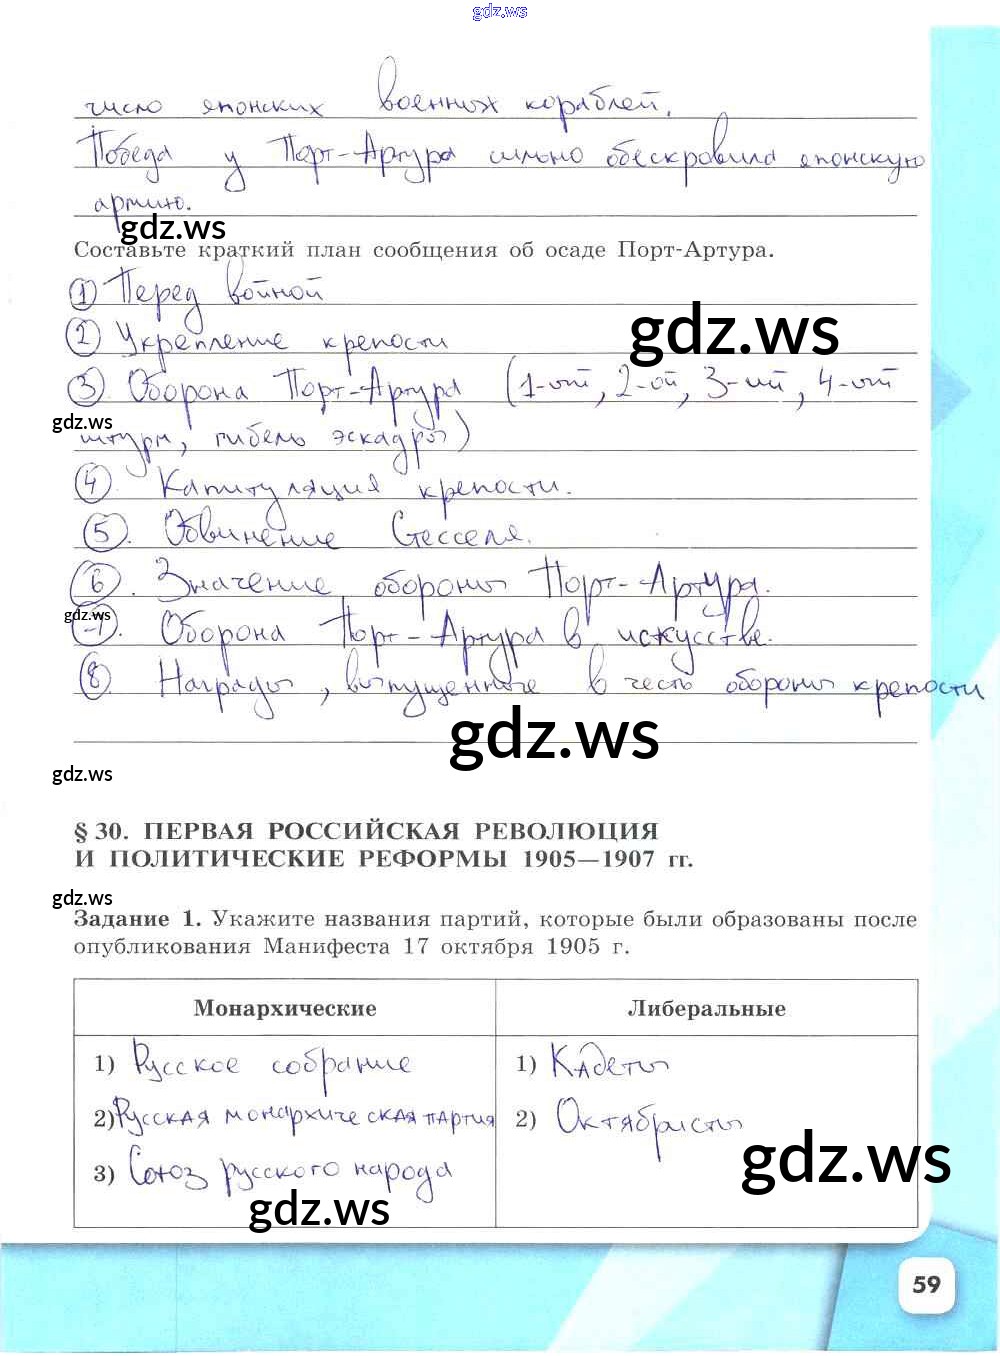 gdz.ws
число японских военных кораблей.
Победа у Порт-Артура сильно обескровила японскую
армию.
gdz.ws
Составьте краткий план сообщения об осаде Порт-Артура.
1) Перед войной
gdz.ws
2) Укрепление крепости
3) Оборона Порт-Артура (1-ый, 2-ой, 3-ий, 4-ый
gdz.ws
штурм, гибель эскадры)
4. Капитуляция крепости.
5. Обвинение Стесселя.
6. Значение обороны Порт-Артура.
gdz.ws
7. Оборона Порт-Артура в искусстве.
8. Награды, выпущенные в честь обороны крепости
gdz.ws
gdz.ws
§ 30. ПЕРВАЯ РОССИЙСКАЯ РЕВОЛЮЦИЯ
И ПОЛИТИЧЕСКИЕ РЕФОРМЫ 1905—1907 гг.
gdz.ws
Задание 1. Укажите названия партий, которые были образованы после
опубликования Манифеста 17 октября 1905 г.
Монархические
1) Русское собрание
2) Русская монархическая партия
3) Союз русского народа
gdz.ws
Либеральные
1) Кадеты
2) Октябристы
gdz.ws
59